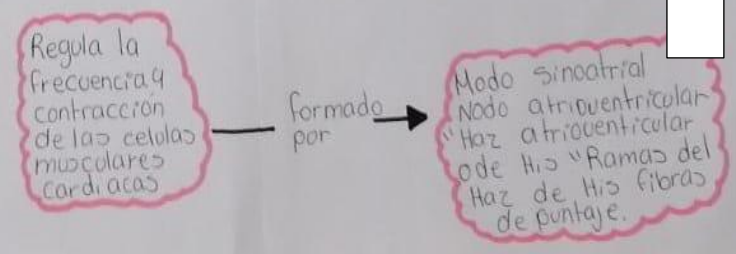 Regula la
frecuencia y
contracción
de las celulas
muscolares
cardiacas
formado
por
Modo sinoatrial
Nodo atrioventricular
"Haz atrioventicular
o de His "Ramas del
Haz de His fibras
de puntaje.